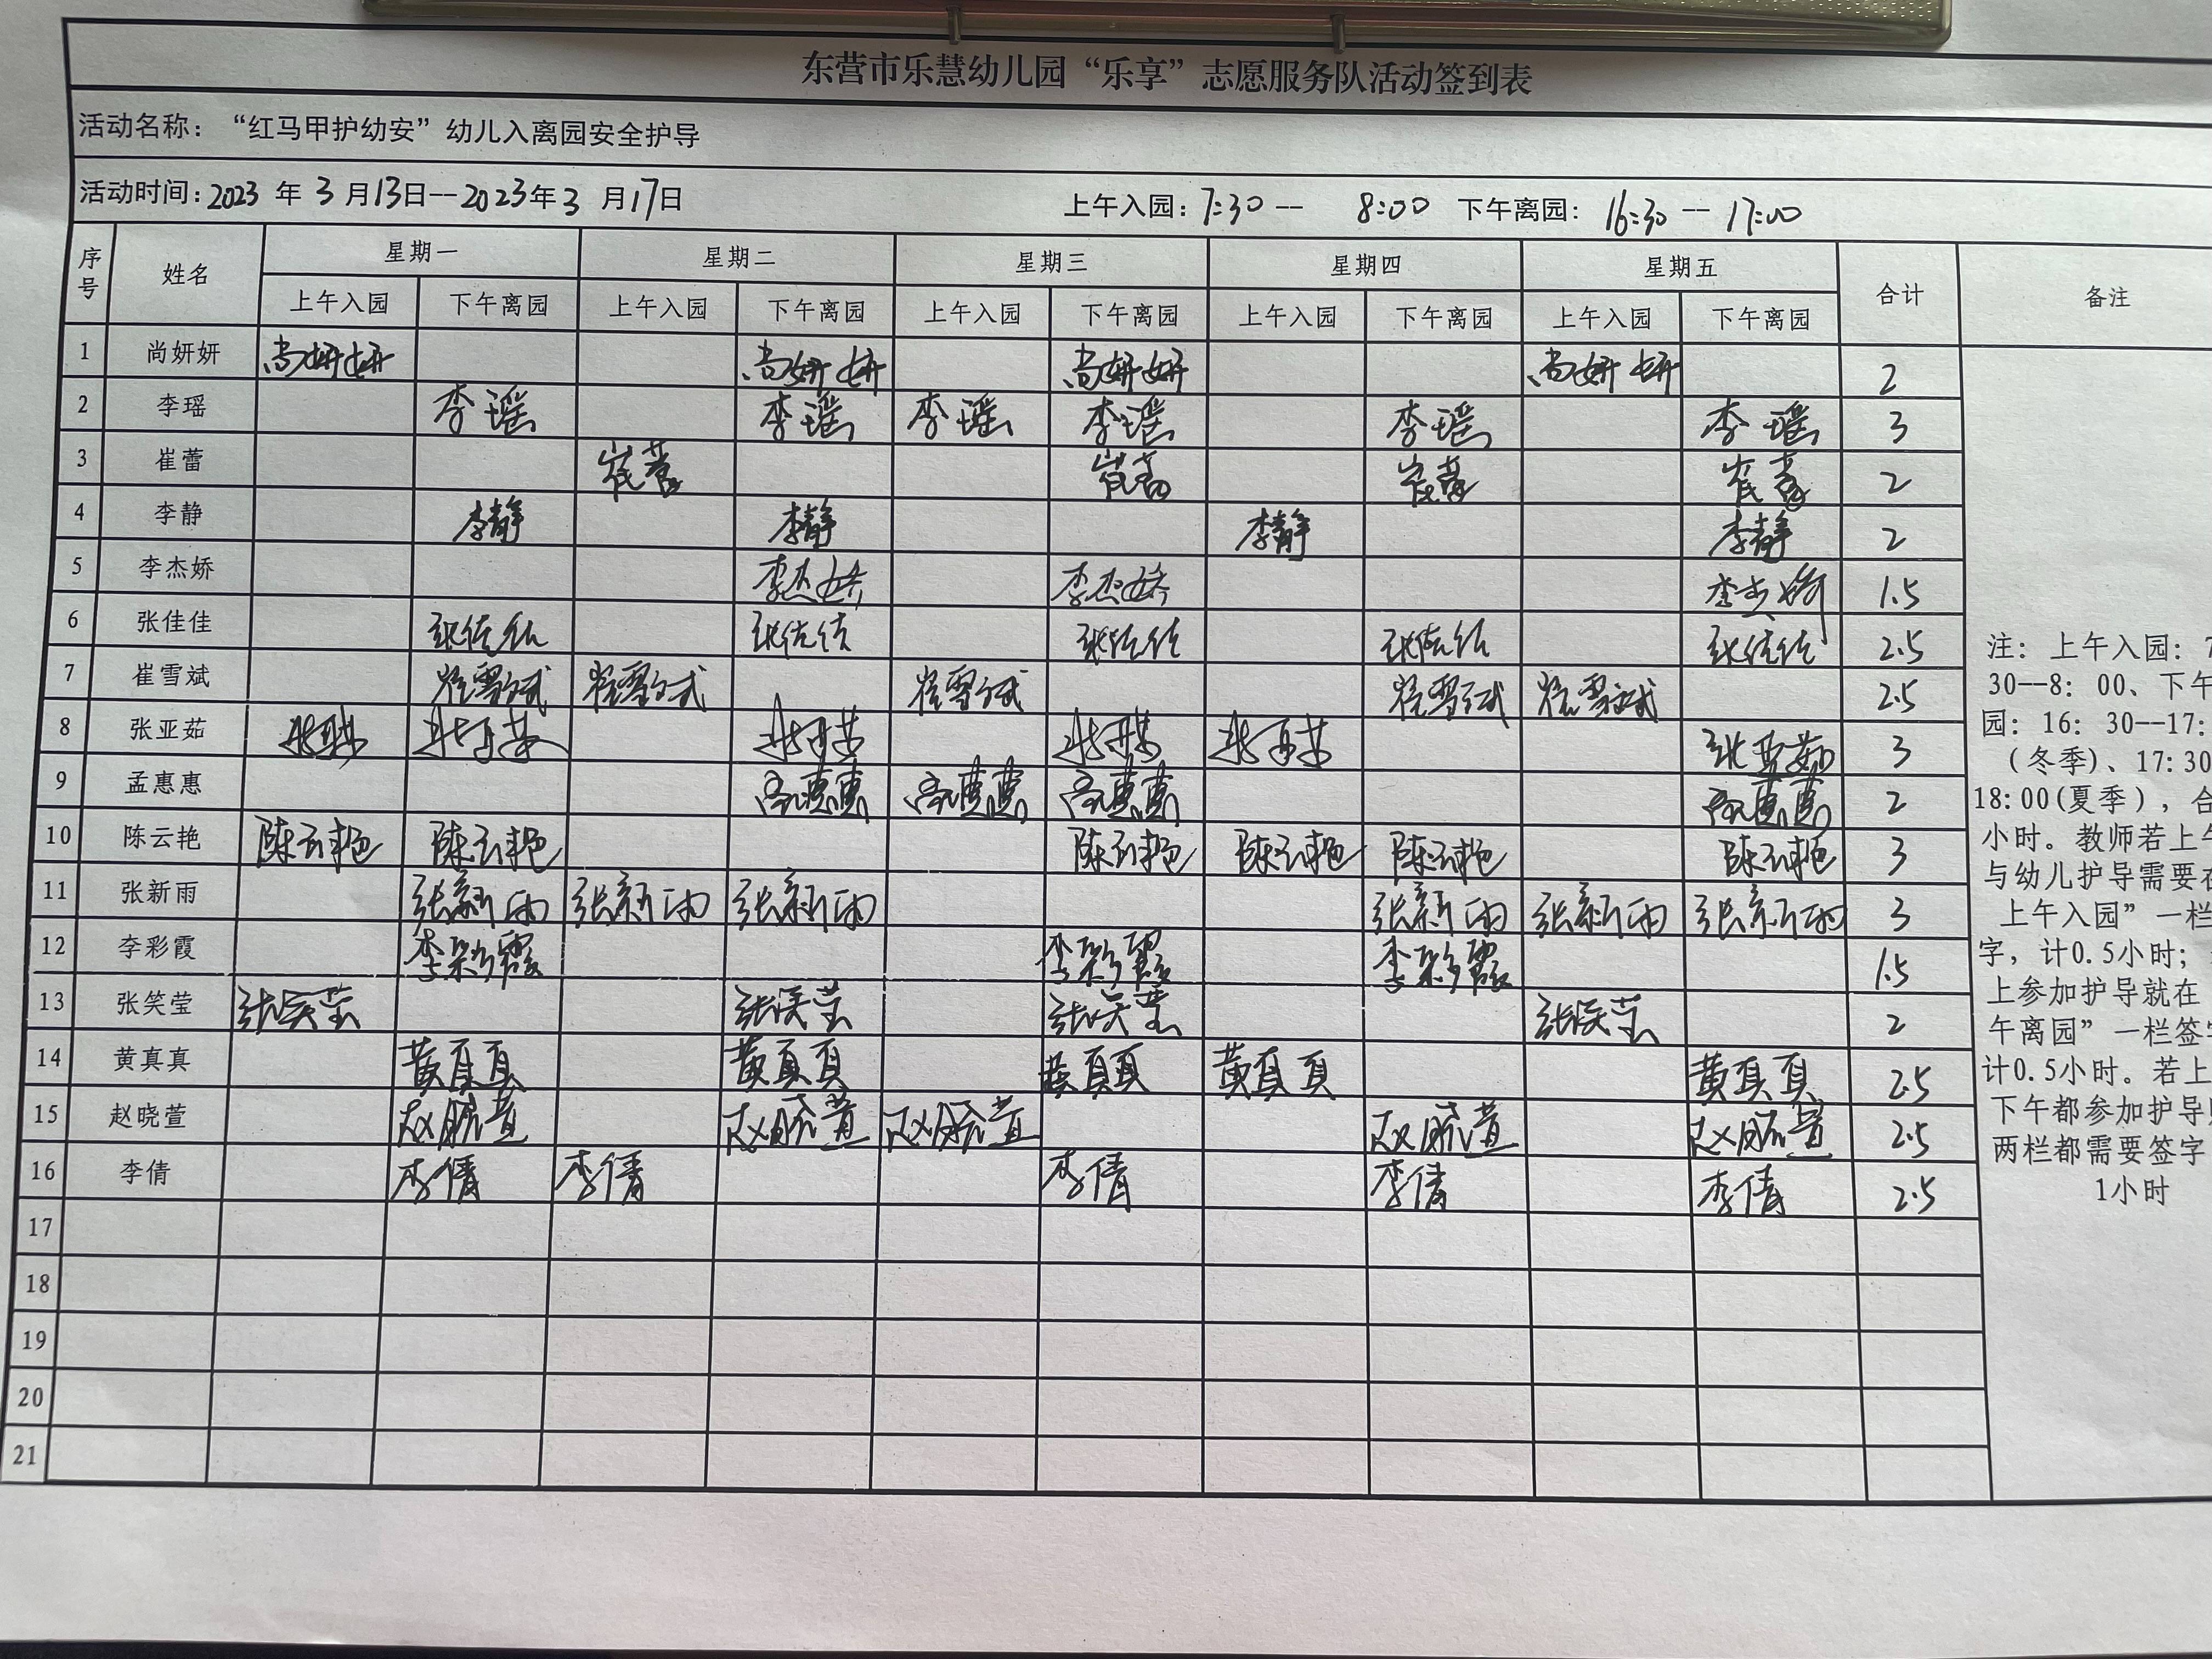 东营市乐慧幼儿园“乐享”志愿服务队活动签到表
活动名称：“红马甲护幼安”幼儿入离园安全护导
活动时间：2023 年 3 月13日--2023年3 月17日 上午入园：7:30 -- 8:00 下午离园：16:30 -- 17:00
序号 姓名 星期一 星期二 星期三 星期四 星期五 合计 备注
上午入园 下午离园 上午入园 下午离园 上午入园 下午离园 上午入园 下午离园 上午入园 下午离园
1 尚妍妍 尚妍妍 尚妍妍 尚妍妍 尚妍妍 2
2 李瑶 李瑶 李瑶 李瑶 李瑶 李瑶 李瑶 3
3 崔蕾 崔蕾 崔蕾 崔蕾 崔蕾 2
4 李静 李静 李静 李静 李静 2
5 李杰娇 李杰娇 李杰娇 李杰娇 1.5
6 张佳佳 张佳佳 张佳佳 张佳佳 张佳佳 张佳佳 2.5
7 崔雪斌 崔雪斌 崔雪斌 崔雪斌 崔雪斌 崔雪斌 2.5
8 张亚茹 张亚茹 张亚茹 张亚茹 张亚茹 张亚茹 张亚茹 3
9 孟惠惠 孟惠惠 孟惠惠 孟惠惠 孟惠惠 2
10 陈云艳 陈云艳 陈云艳 陈云艳 陈云艳 陈云艳 陈云艳 3
11 张新雨 张新雨 张新雨 张新雨 张新雨 张新雨 张新雨 3
12 李彩霞 李彩霞 李彩霞 李彩霞 1.5
13 张笑莹 张笑莹 张笑莹 张笑莹 张笑莹 2
14 黄真真 黄真真 黄真真 黄真真 黄真真 黄真真 2.5
15 赵晓萱 赵晓萱 赵晓萱 赵晓萱 赵晓萱 赵晓萱 2.5
16 李倩 李倩 李倩 李倩 李倩 李倩 2.5
17
18
19
20
21
注：上午入园：7
30--8：00、下午
园：16：30--17：
（冬季）、17:30
18:00(夏季），合
小时。教师若上午
与幼儿护导需要在
上午入园”一栏
字，计0.5小时；
上参加护导就在
午离园”一栏签字
计0.5小时。若上
下午都参加护导
两栏都需要签字
1小时